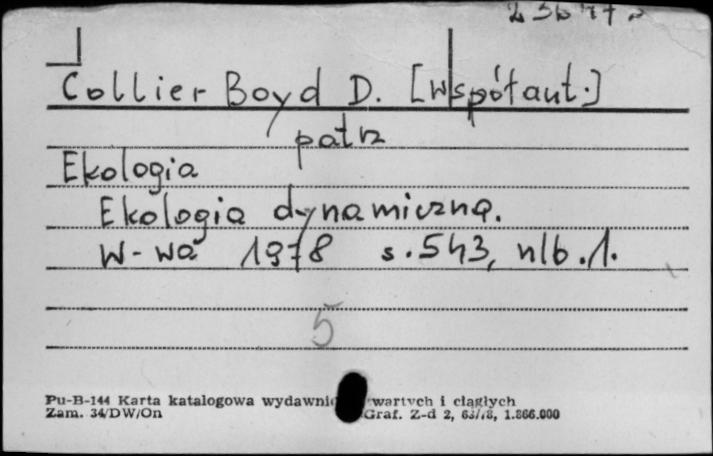 Collier Boyd D. [współaut.]
patrz
Ekologia
Ekologia dynamiczna.
W-wa 1978 s. 543, nlb. 1.
5
Pu-B-144 Karta katalogowa wydawnic wartych i ciągłych
Zam. 34/DW/On Graf. Z-d 2, 1.866.000